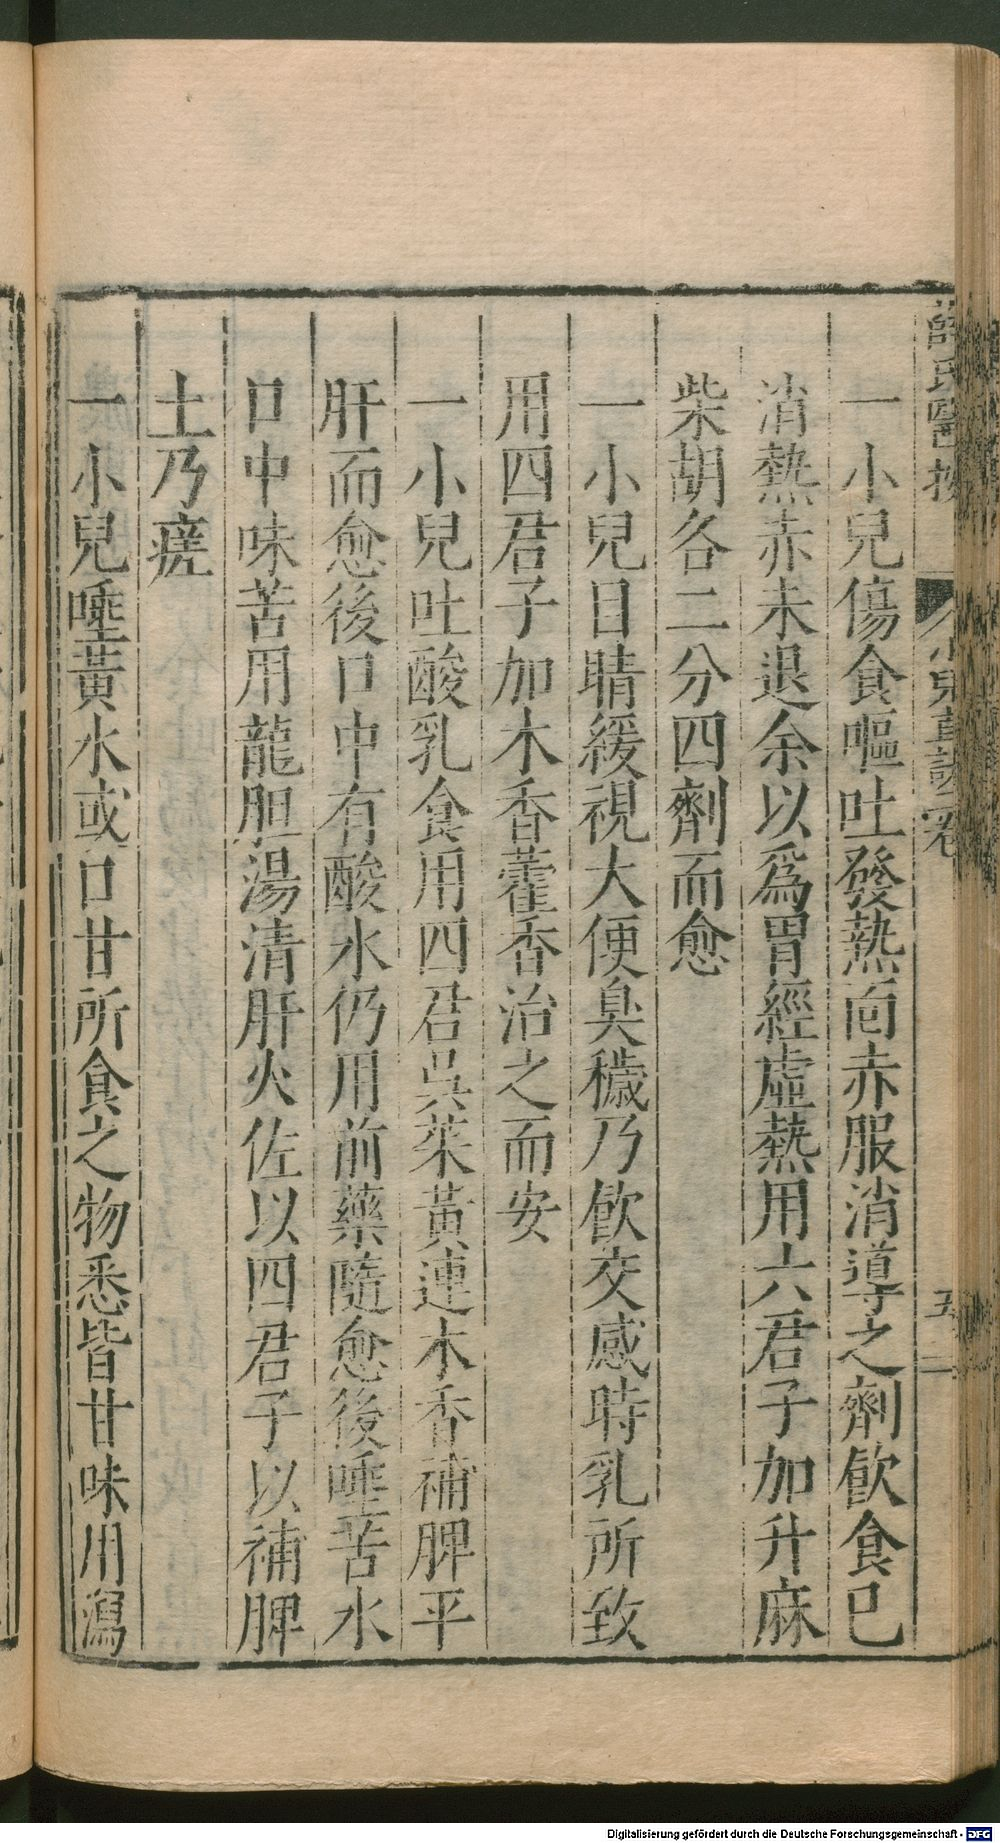 薛氏醫按 小兒直訣卷 五 二
一小兒傷食嘔吐發熱面赤服消導之劑飲食已
消熱赤未退余以爲胃經虛熱用六君子加升麻
柴胡各二分四劑而愈
一小兒目睛緩視大便臭穢乃飲交感時乳所致
用四君子加木香藿香治之而安
一小兒吐酸乳食用四君吳茱黃連木香補脾平
肝而愈後口中有酸水仍用前藥隨愈後唾苦水
口中味苦用龍胆湯清肝火佐以四君子以補脾
土乃瘥
一小兒唾黃水或口甘所食之物悉皆甘味用瀉
Digitalisierung gefördert durch die Deutsche Forschungsgemeinschaft - DFG